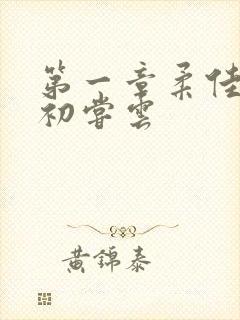 第一章柔佳
初尝雲
黄錦泰